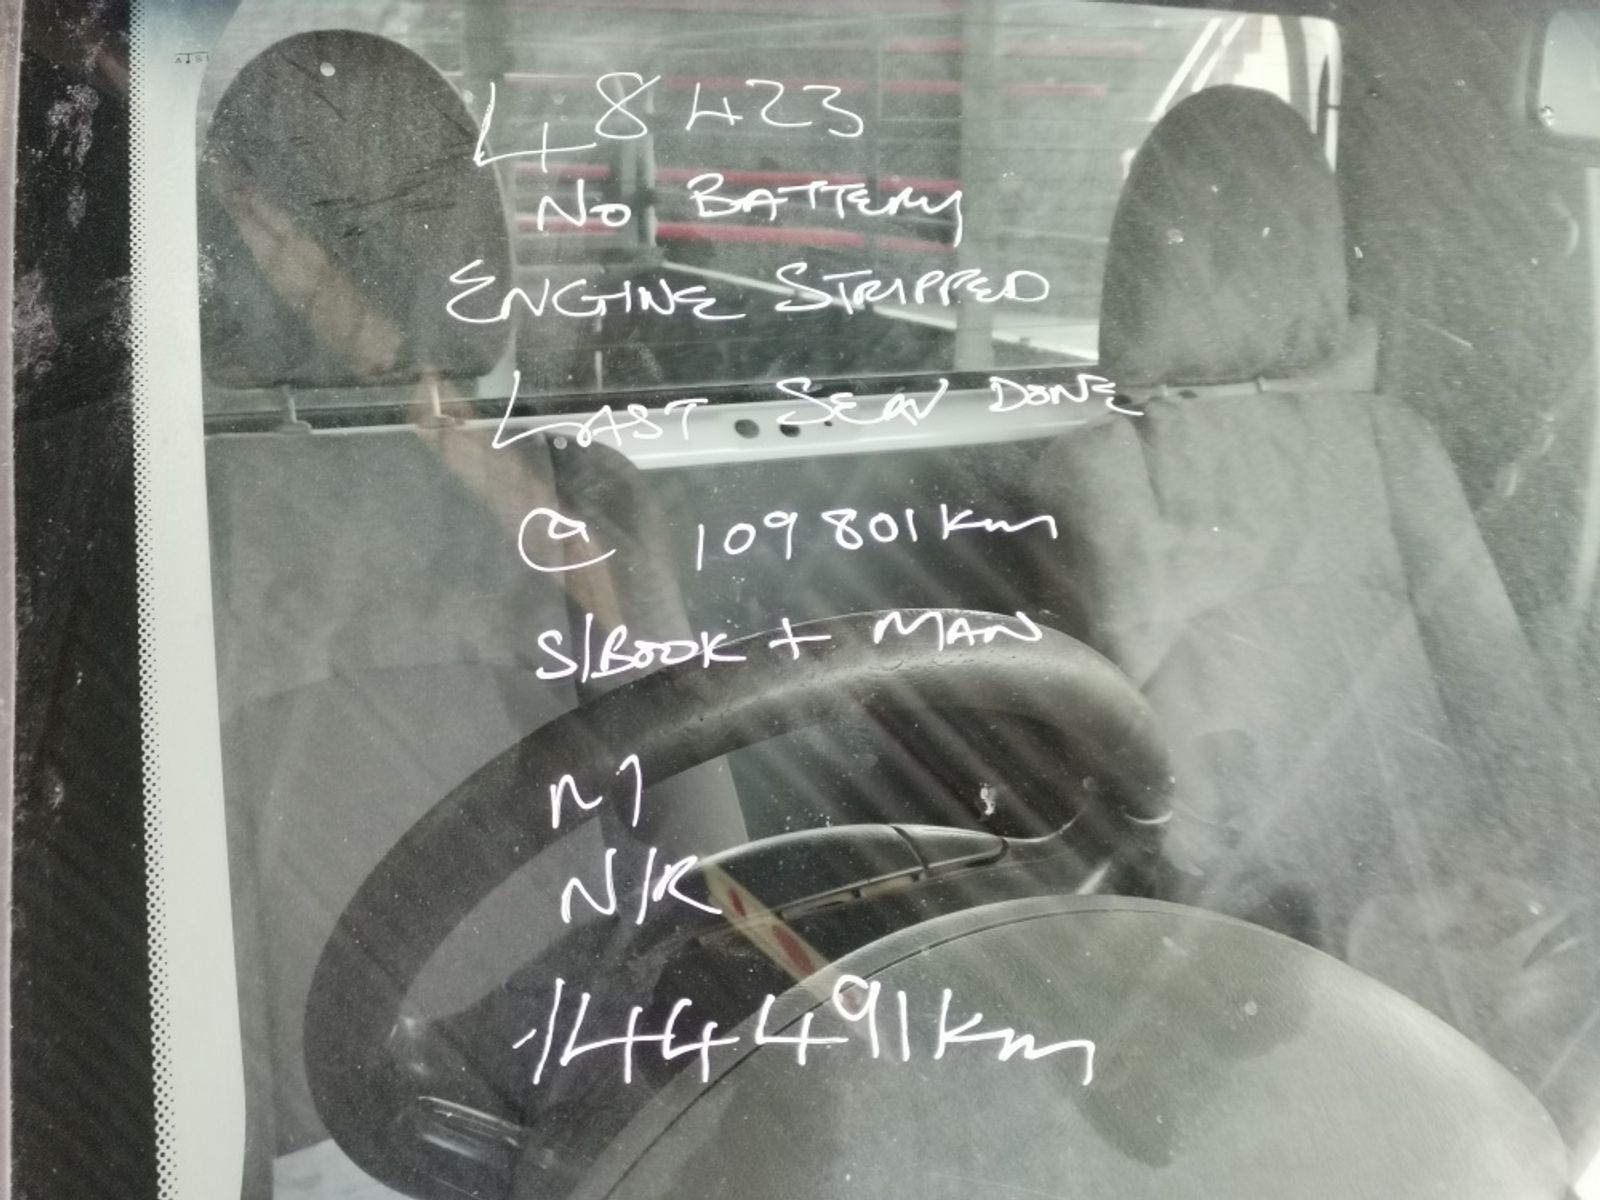 48423
No BATTERY
ENGINE STRIPPED
LAST SERV DONE
@ 109801km
S/BOOK + MAN
N/R
144491km